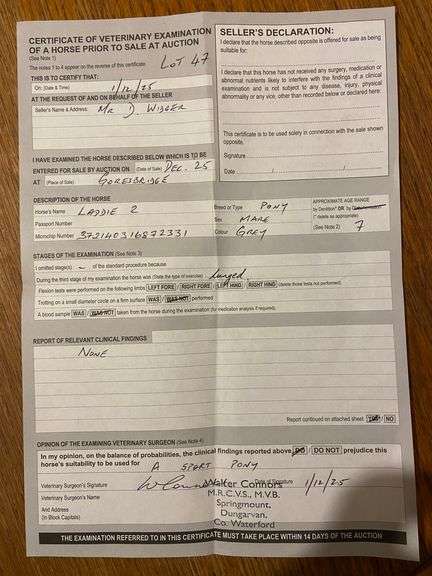 CERTIFICATE OF VETERINARY EXAMINATION
OF A HORSE PRIOR TO SALE AT AUCTION
(See Note 1)
LOT 47
The notes 1 to 4 appear on the reverse of this certificate
THIS IS TO CERTIFY THAT:
On: (Date & Time) 1/12/25
AT THE REQUEST OF AND ON BEHALF OF THE SELLER
Seller's Name & Address: MR D. WIDGER
I HAVE EXAMINED THE HORSE DESCRIBED BELOW WHICH IS TO BE
ENTERED FOR SALE BY AUCTION ON (Date of Sale) DEC. 25
AT (Place of Sale) GORESBRIDGE
SELLER'S DECLARATION:
I declare that the horse described opposite is offered for sale as being
suitable for:
I declare that this horse has not received any surgery, medication or
abnormal nutrients likely to interfere with the findings of a clinical
examination and is not subject to any disease, injury, physical
abnormality or any vice, other than recorded below or declared here:
This certificate is to be used solely in connection with the sale shown
opposite.
Signature
Date / /
DESCRIPTION OF THE HORSE
Horse's Name LADDIE 2
Passport Number
Microchip Number 372140316872331
Breed or Type PONY
Sex MARE
Colour GREY
APPROXIMATE AGE RANGE
by Dentition* OR by
(* delete as appropriate)
(See Note 2) 7
STAGES OF THE EXAMINATION (See Note 3)
I omitted stage(s) - of the standard procedure because
During the third stage of my examination the horse was (State the type of exercise) Lunged
Flexion tests were performed on the following limbs LEFT FORE / RIGHT FORE / LEFT HIND / RIGHT HIND (delete those tests not performed).
Trotting on a small diameter circle on a firm surface WAS / WAS NOT performed
A blood sample WAS / WAS NOT taken from the horse during the examination (for medication analysis if required).
REPORT OF RELEVANT CLINICAL FINDINGS
NONE
Report continued on attached sheet YES / NO
OPINION OF THE EXAMINING VETERINARY SURGEON (See Note 4)
In my opinion, on the balance of probabilities, the clinical findings reported above DO / DO NOT prejudice this
horse's suitability to be used for A SPORT PONY
Veterinary Surgeon's Signature W Connors Date of Signature 1/12/25
Veterinary Surgeon's Name
And Address
(In Block Capitals)
Walter Connors
M.R.C.V.S., M.V.B.
Springmount,
Dungarvan,
Co. Waterford
THE EXAMINATION REFERRED TO IN THIS CERTIFICATE MUST TAKE PLACE WITHIN 14 DAYS OF THE AUCTION